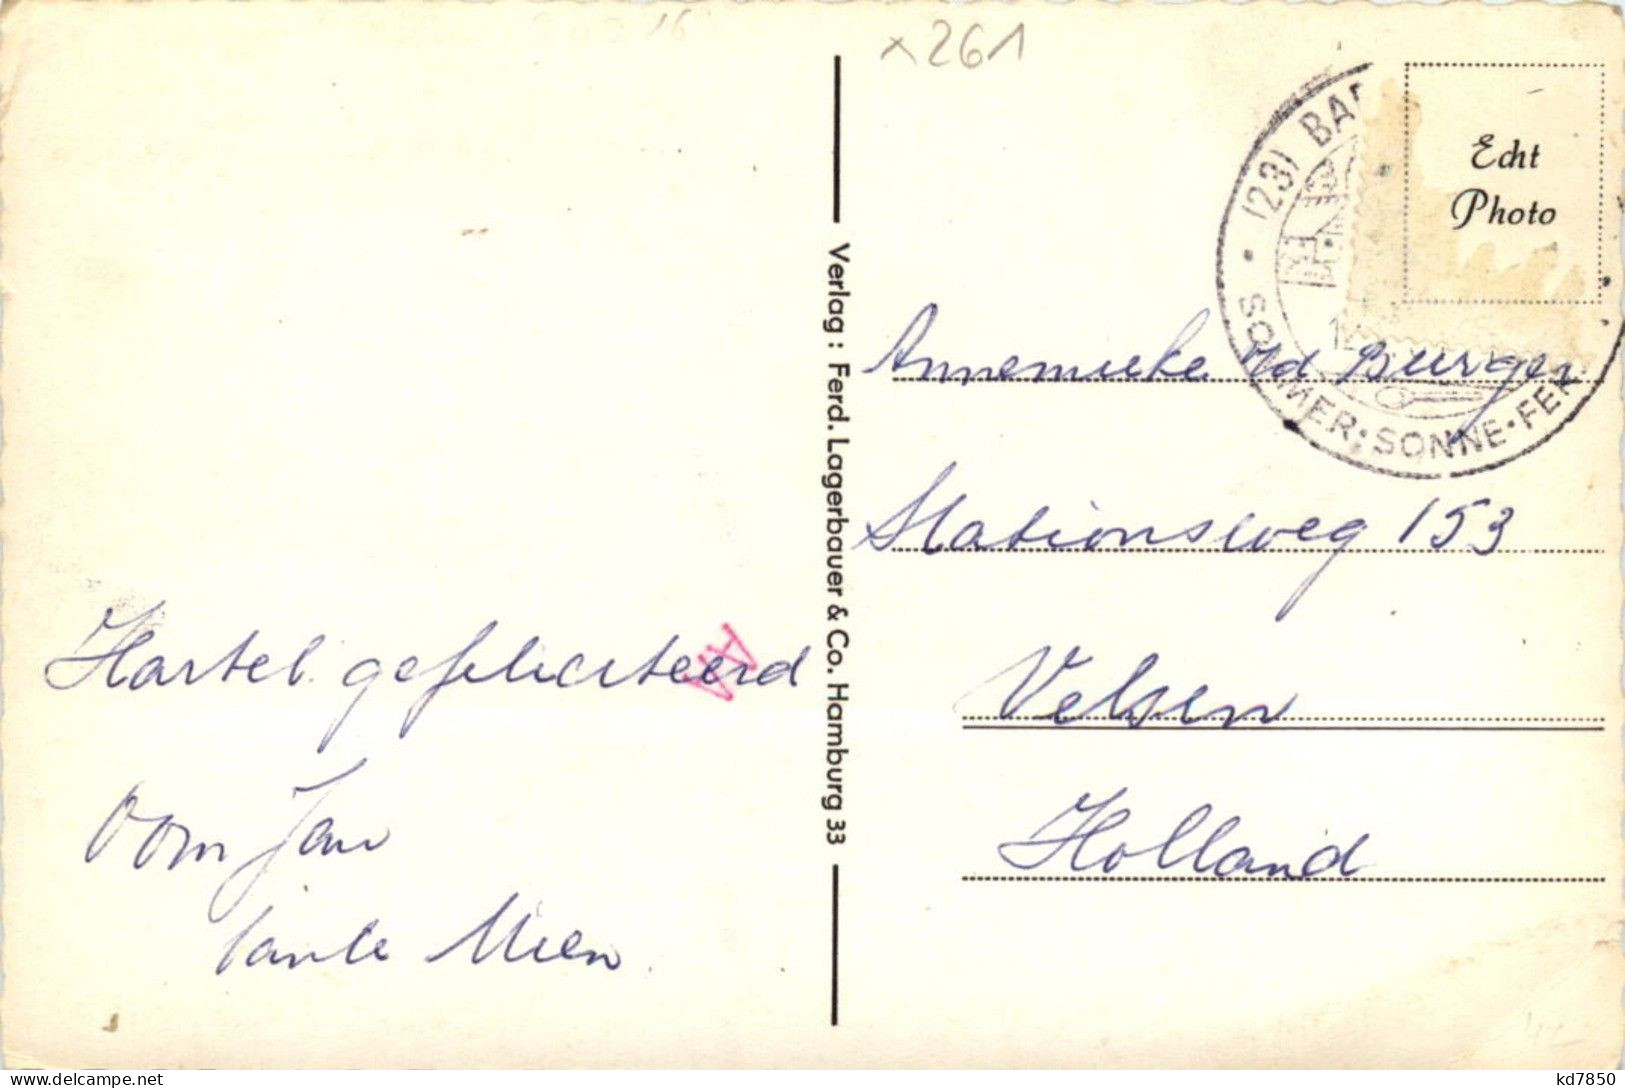 ×261
(23) BAD
Echt
Photo
SOMMER·SONNE·FER
Verlag: Ferd. Lagerbauer & Co. Hamburg 33
Annemieke v/d Burger
Stationsweg 153
Velsen
Holland
Hartel. gefeliciteerd
Oom Jan
tante Mien
delcampe.net
kd7850